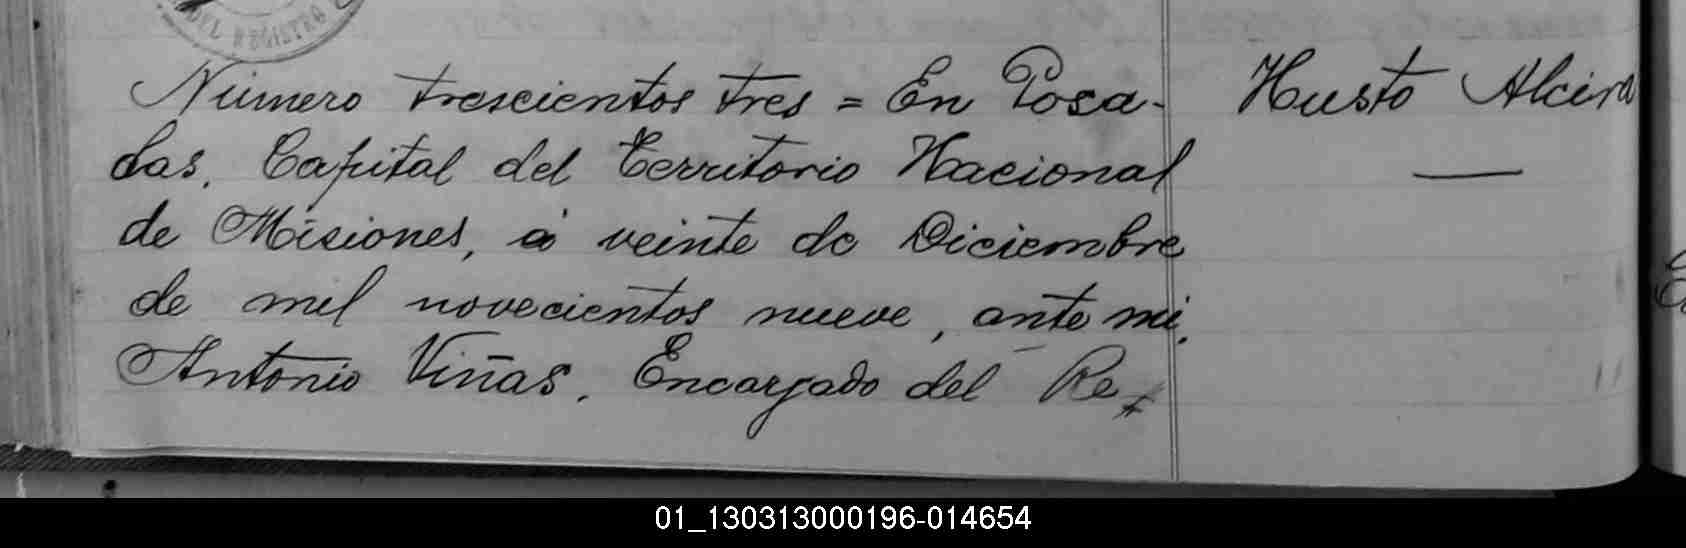 DEL REGISTRO
Número trescientos tres = En Posa-
das, Capital del Territorio Nacional
de Misiones, á veinte de Diciembre
de mil novecientos nueve, ante mi,
Antonio Viñas, Encargado del Re-
Husto Alcira
01_130313000196-014654